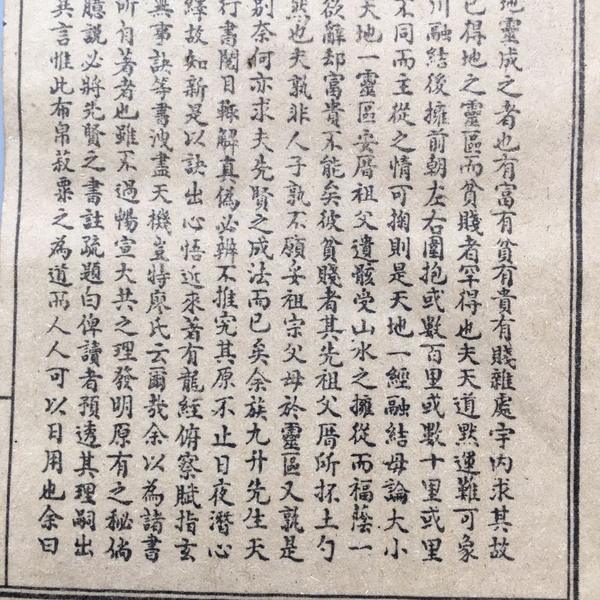 地靈成之者也有富有貧有貴有賤雜處宇內求其故
已得地之靈區而貧賤者罕得也夫天道默運難可象
川融結後擁前朝左右圍抱或數百里或數十里或里
不同而主從之情可掬則是天地一經融結毋論大小
天地一靈區妥厝祖父遺骸受山水之擁從而福蔭一
欲辭却富貴不能矣彼貧賤者其先祖父厝所抔土勺
然也夫孰非人子孰不願妥祖宗父母於靈區又孰是
別奈何亦求夫先賢之成法而已矣余族九升先生天
行書閱目輙解真偽必辨不推究其原不止日夜潛心
繹故知新是以訣出心悟近來著有龍經俯察賦指玄
無事訣等書洩盡天機豈特廖氏云爾哉余以為諸書
所自著者也雖不過暢宣大共之理發明原有之秘倘
臆說必將先賢之書註疏題白俾讀者預透其理嗣出
其言惟此布帛菽粟之為道而人人可以日用也余曰